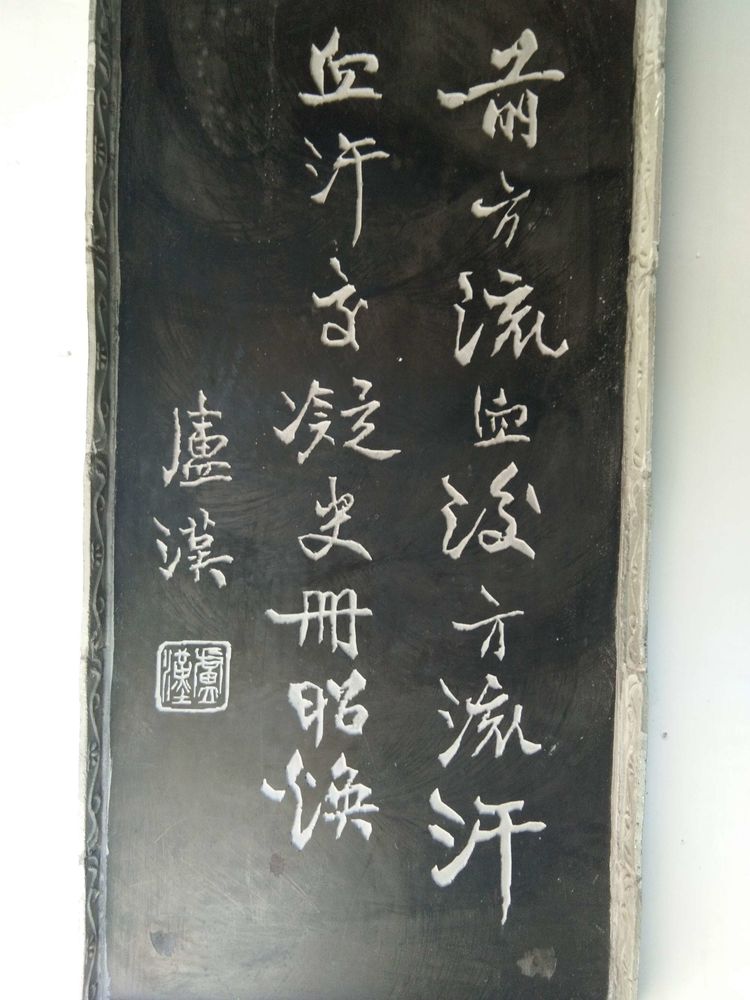 前方流血後方流汗
血汗交凝史冊昭煥
盧漢
盧漢